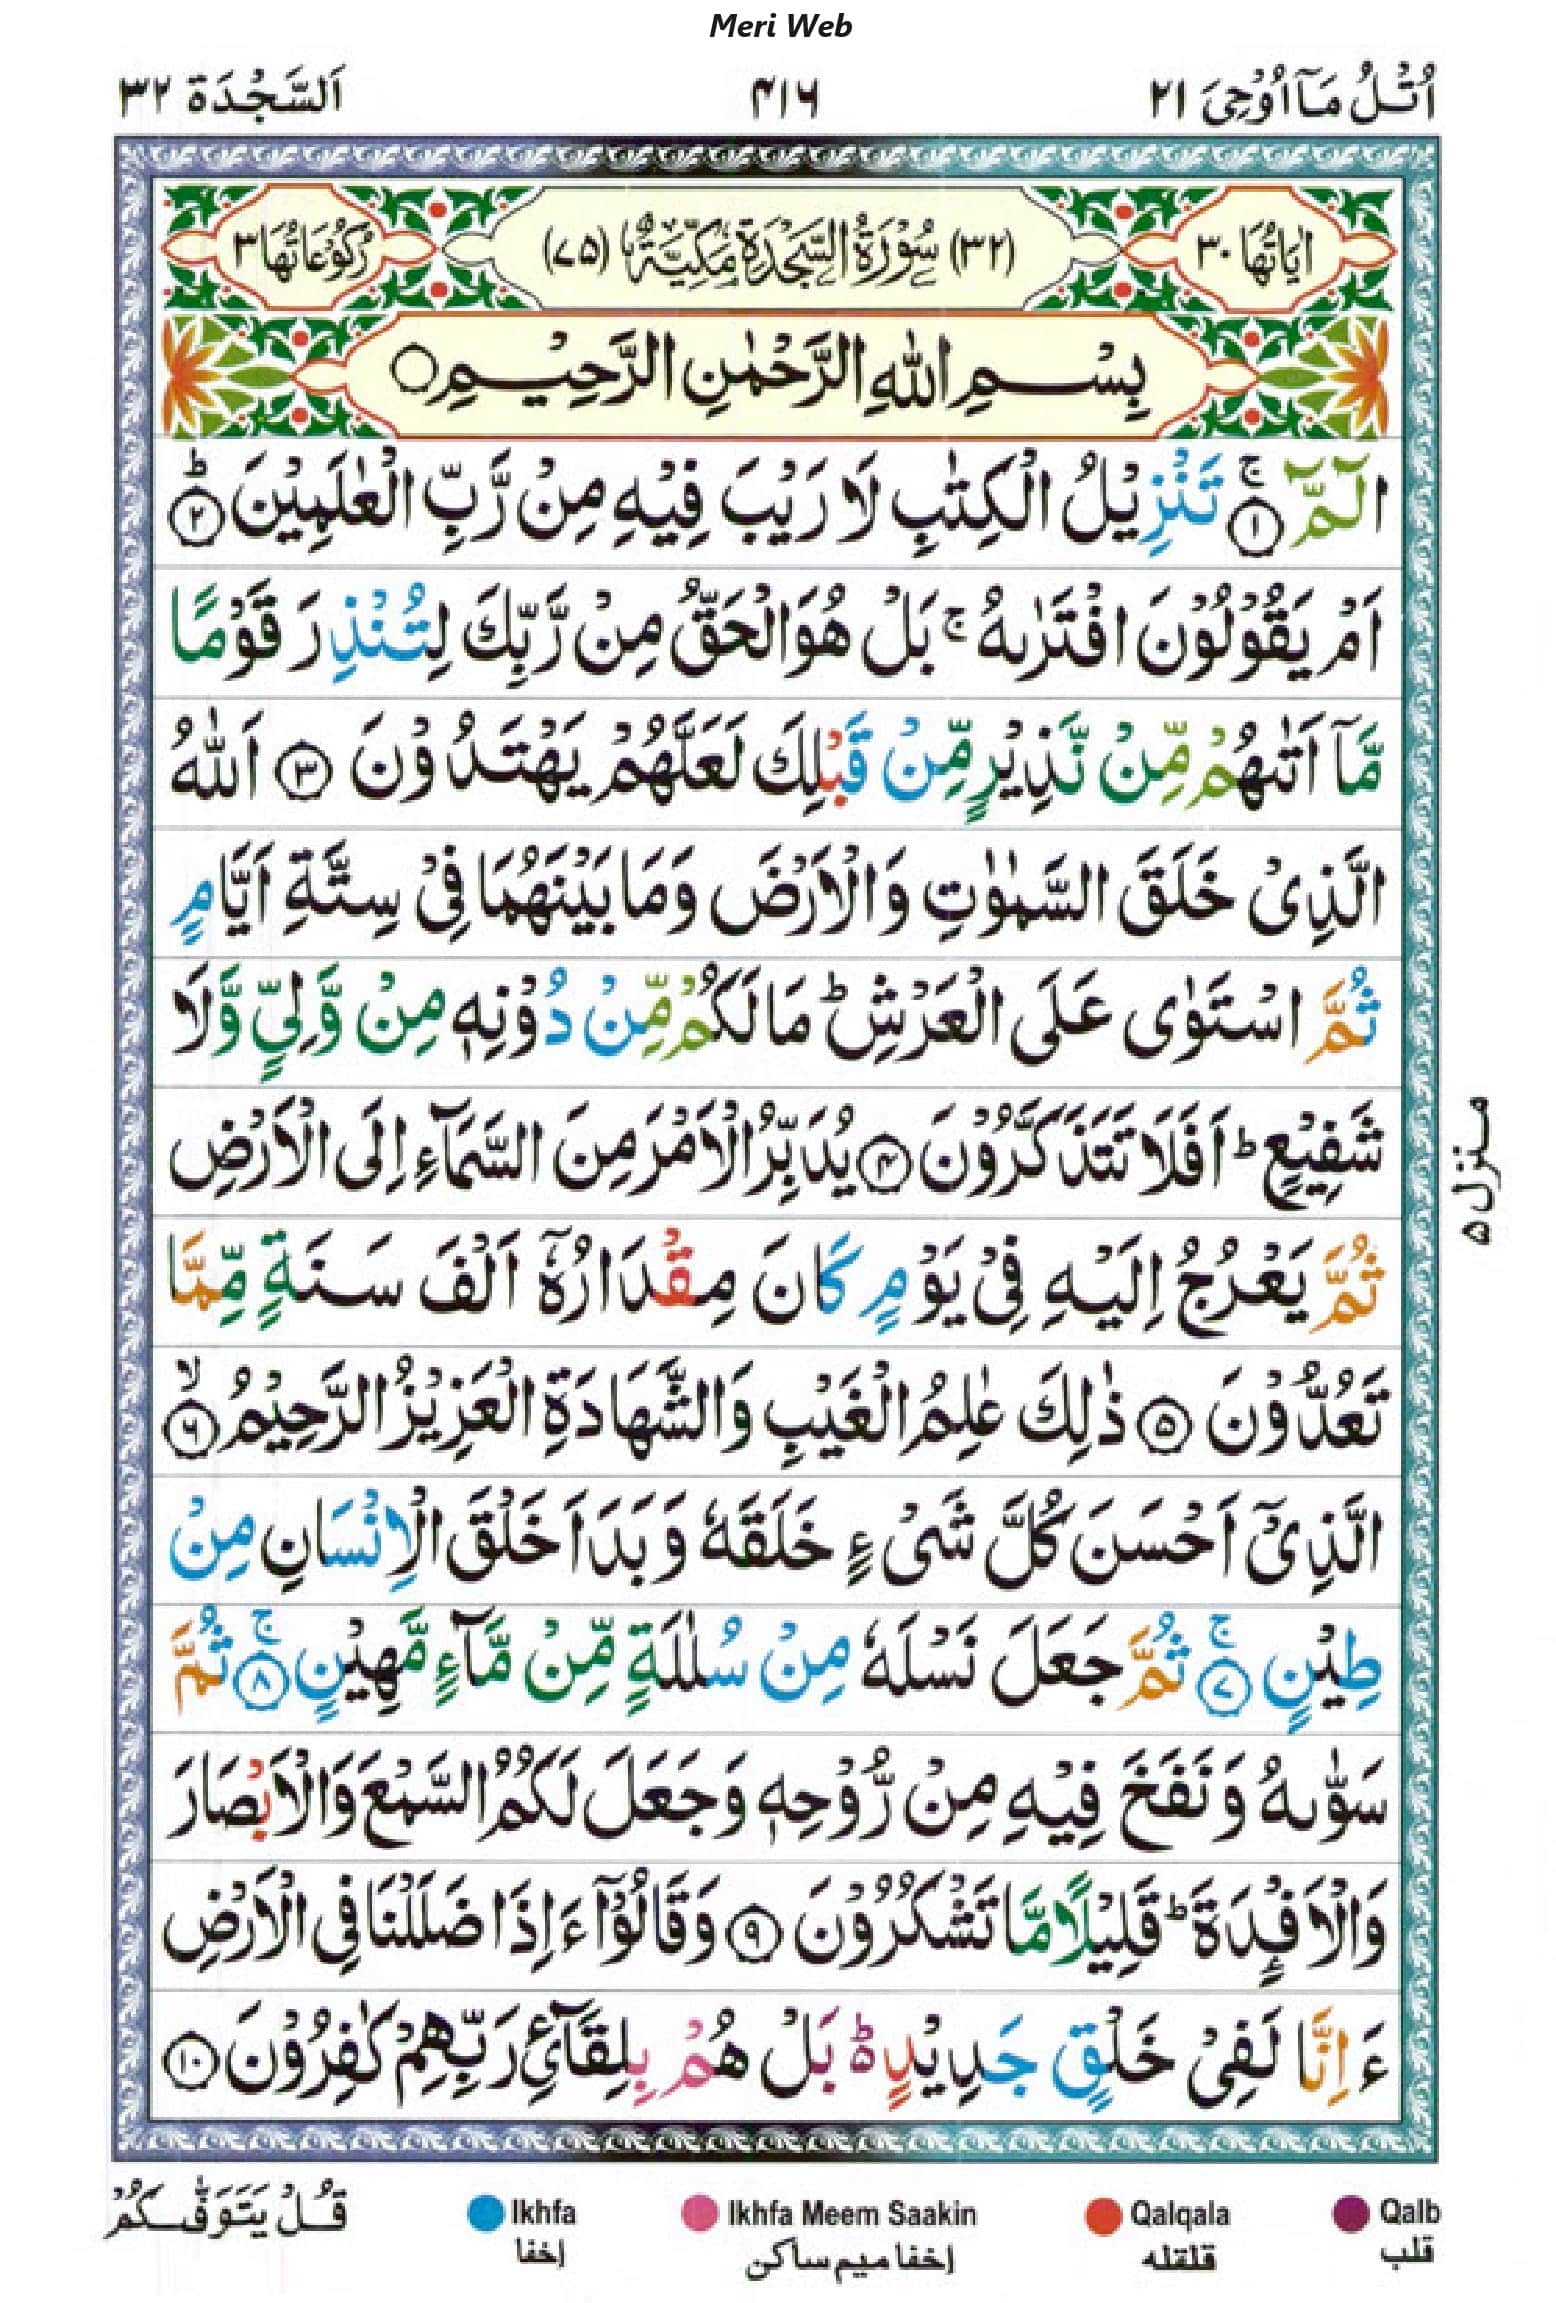 Meri Web
اُتْلُ مَاۤ اُوْحِیَ ۲۱
۴۱۶
اَلسَّجْدَة ۳۲
اٰیَاتُهَا ۳۰
(۳۲) سُوْرَةُ السَّجْدَةِ مَكِّیَّةٌ (۷۵)
رُكُوْعَاتُهَا ۳
بِسْمِ اللّٰهِ الرَّحْمٰنِ الرَّحِیْمِ
الٓمّٓ ۚ﴿۱﴾ تَنْزِیْلُ الْكِتٰبِ لَا رَیْبَ فِیْهِ مِنْ رَّبِّ الْعٰلَمِیْنَ ؕ﴿۲﴾
اَمْ یَقُوْلُوْنَ افْتَرٰىهُ ۚ بَلْ هُوَ الْحَقُّ مِنْ رَّبِّكَ لِتُنْذِرَ قَوْمًا
مَّاۤ اَتٰىهُمْ مِّنْ نَّذِیْرٍ مِّنْ قَبْلِكَ لَعَلَّهُمْ یَهْتَدُوْنَ ﴿۳﴾ اَللّٰهُ
الَّذِیْ خَلَقَ السَّمٰوٰتِ وَالْاَرْضَ وَمَا بَیْنَهُمَا فِیْ سِتَّةِ اَیَّامٍ
ثُمَّ اسْتَوٰی عَلَی الْعَرْشِ ؕ مَا لَكُمْ مِّنْ دُوْنِهٖ مِنْ وَّلِیٍّ وَّلَا
شَفِیْعٍ ؕ اَفَلَا تَتَذَكَّرُوْنَ ﴿۴﴾ یُدَبِّرُ الْاَمْرَ مِنَ السَّمَآءِ اِلَی الْاَرْضِ
ثُمَّ یَعْرُجُ اِلَیْهِ فِیْ یَوْمٍ كَانَ مِقْدَارُهٗۤ اَلْفَ سَنَةٍ مِّمَّا
تَعُدُّوْنَ ﴿۵﴾ ذٰلِكَ عٰلِمُ الْغَیْبِ وَالشَّهَادَةِ الْعَزِیْزُ الرَّحِیْمُ ۙ﴿۶﴾
الَّذِیْۤ اَحْسَنَ كُلَّ شَیْءٍ خَلَقَهٗ وَبَدَاَ خَلْقَ الْاِنْسَانِ مِنْ
طِیْنٍ ۚ﴿۷﴾ ثُمَّ جَعَلَ نَسْلَهٗ مِنْ سُلٰلَةٍ مِّنْ مَّآءٍ مَّهِیْنٍ ۚ﴿۸﴾ ثُمَّ
سَوّٰىهُ وَنَفَخَ فِیْهِ مِنْ رُّوْحِهٖ وَجَعَلَ لَكُمُ السَّمْعَ وَالْاَبْصَارَ
وَالْاَفْـِٕدَةَ ؕ قَلِیْلًا مَّا تَشْكُرُوْنَ ﴿۹﴾ وَقَالُوْۤا ءَاِذَا ضَلَلْنَا فِی الْاَرْضِ
ءَاِنَّا لَفِیْ خَلْقٍ جَدِیْدٍ ؕ۬ بَلْ هُمْ بِلِقَآئِ رَبِّهِمْ كٰفِرُوْنَ ﴿۱۰﴾
منزل ۵
قُلْ یَتَوَفّٰىكُمْ
Ikhfa
إخفا
Ikhfa Meem Saakin
إخفا ميم ساكن
Qalqala
قلقله
Qalb
قلب